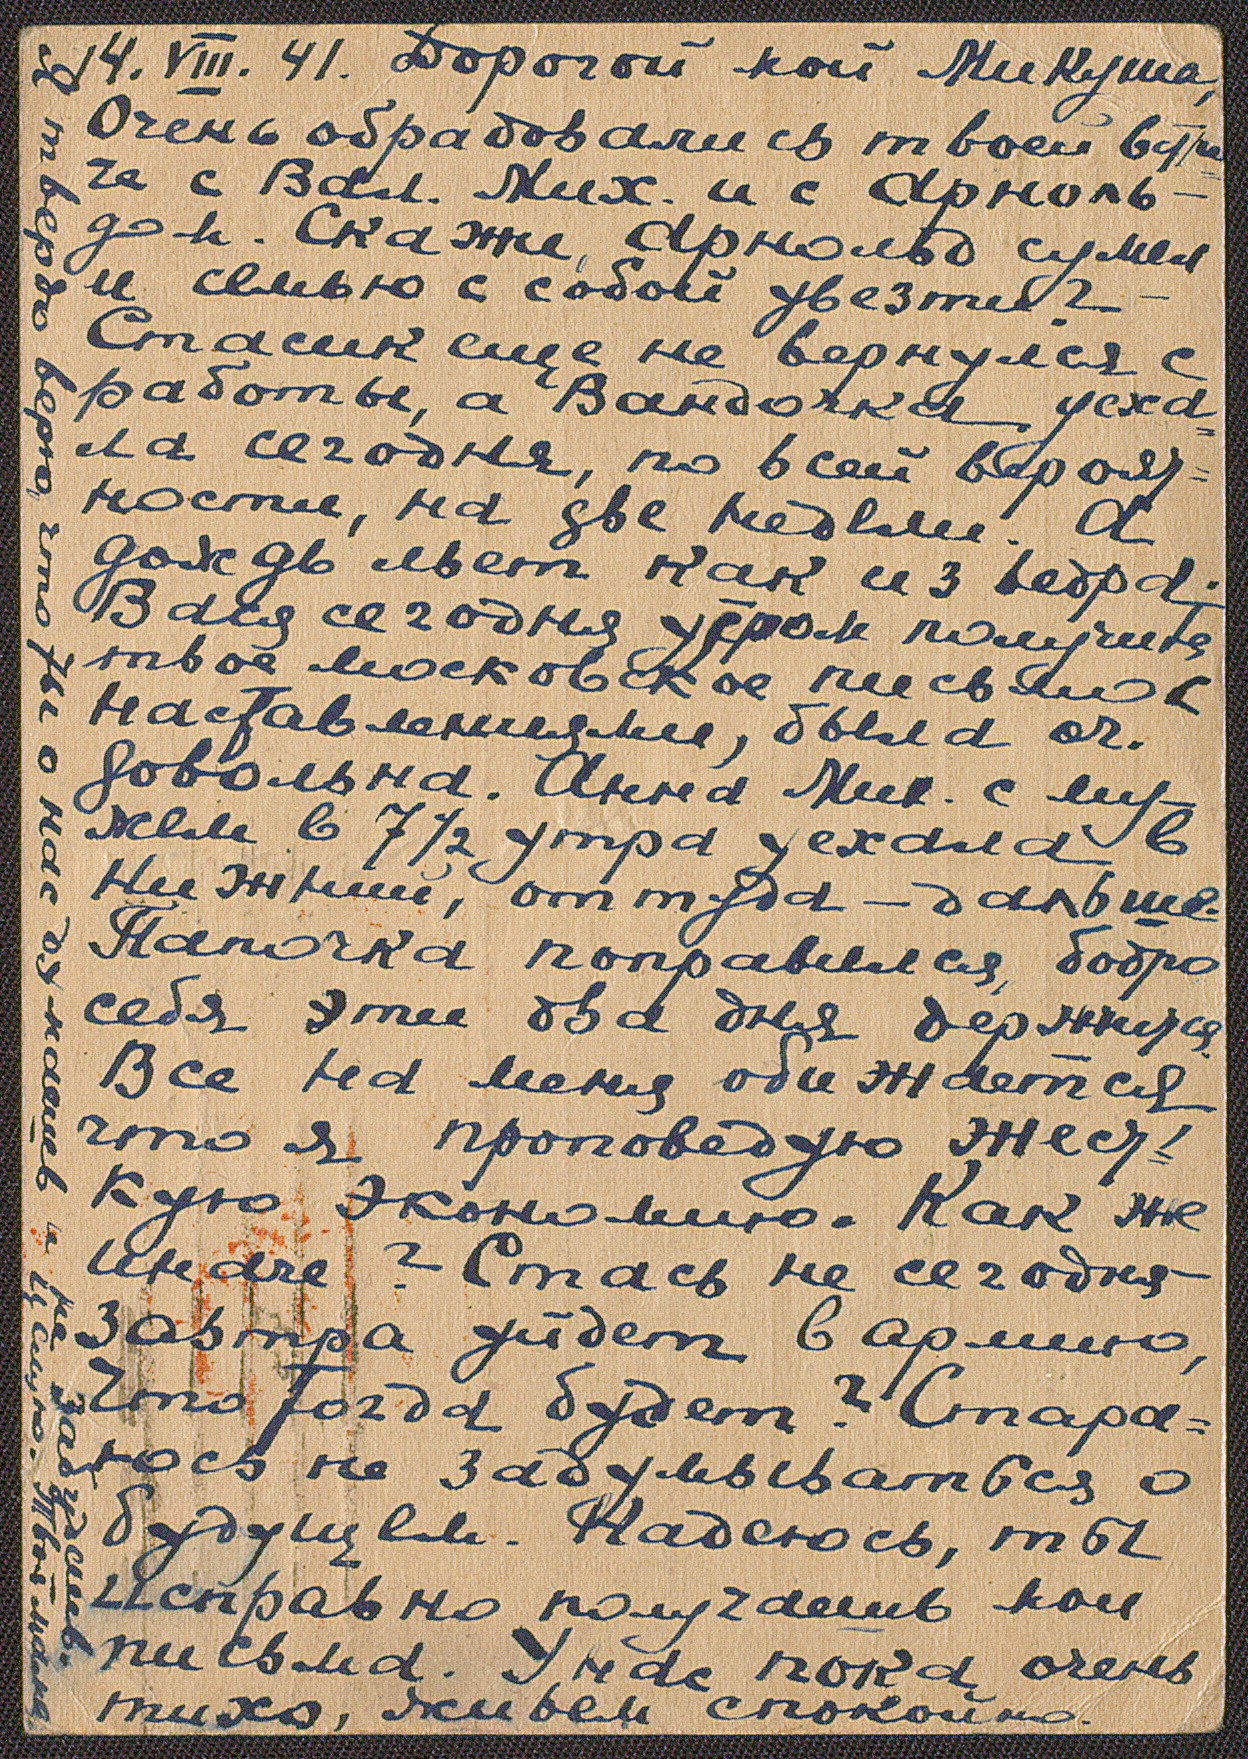 14. VIII. 41. Дорогой мой Микуша,
Очень обрадовались твоей встре=
че с Вал. Мих. и с Арноль-
дом. Скажи, Арнольд сумел
и семью с собой увезти? -
Стасик еще не вернулся с
работы, а Вандочка уеха=
ла сегодня, по всей вероят=
ности, на две недели. А
дождь льет как из ведра.
Валя сегодня утром получила
твое московское письмо с
наставлениями, была оч.
довольна. Анна Мих. с му-
жем в 7 1/2 утра уехала в
Нижний, оттуда – дальше.
Папочка поправился, бодро
себя эти два дня держится.
Все на меня обижается
что я проповедую жест=
кую экономию. Как же
иначе? Стась не сегодня
завтра уйдет в армию,
Что тогда будет? Стара=
юсь не задумываться о
будущем. Надеюсь, ты
исправно получаешь мои
письма. У нас пока очень
тихо, живем спокойно.
Я твердо верю, что ты о нас думаешь и не забудешь.
Целую. Твоя мама